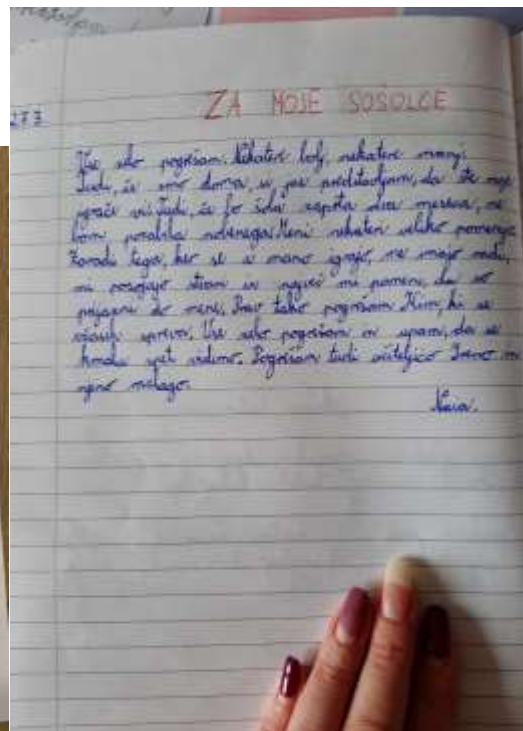 27.3.
ZA MOJE SOŠOLCE
Vse zelo pogrešam. Nekatere bolj, nekatere manj.
Tudi, če smo doma, si jaz predstavljam, da ste moje
vi. Tudi, če bo šola zaprta dva meseca, ne
bom pozabila nobenega. Meni nekateri veliko pomenijo.
Zaradi tega, ker se z mano igrajo, me imajo radi,
mi posojajo stvari in največ mi pomeni, da so
prijazni do mene. Prav tako pogrešam Nino, ki se
včasih. Vse zelo pogrešam in upam, da se
kmalu spet vidimo. Pogrešam tudi učiteljico Ireno in
njeno